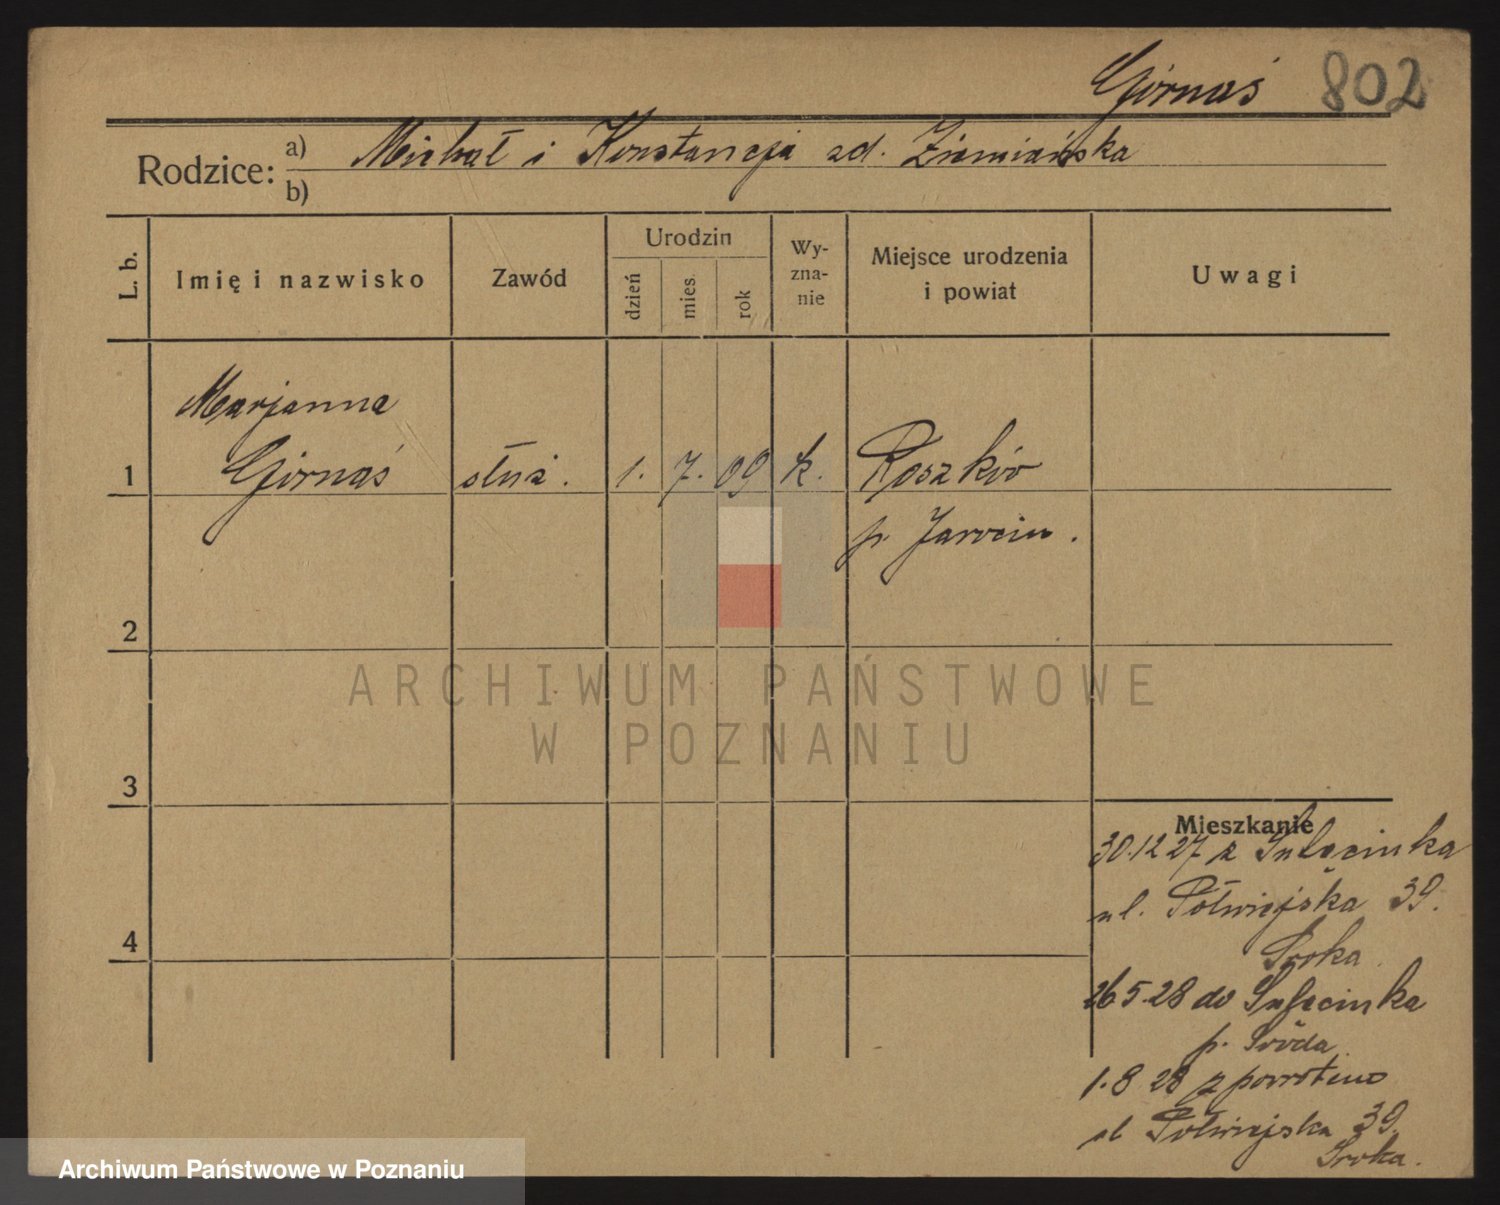 Górnaś 802
Rodzice: a) Michał i Konstancja zd. Ziemiańska
b)
L. b. Imię i nazwisko Zawód Urodzin dzień mies. rok Wy-zna-nie Miejsce urodzenia i powiat Uwagi
Marjanna
1 Górnaś służ. 1. 7. 09 k. Roszków
p. Jarocin.
2
ARCHIWUM PAŃSTWOWE
W POZNANIU
3
Mieszkanie
30.12 27 z Sulęcinka
ul. Półwiejska 39.
Sroka
4
26 5.28 do Sulęcinka
p. Środa
1.8 28 z powrotem
ul Półwiejska 39.
Sroka.
Archiwum Państwowe w Poznaniu